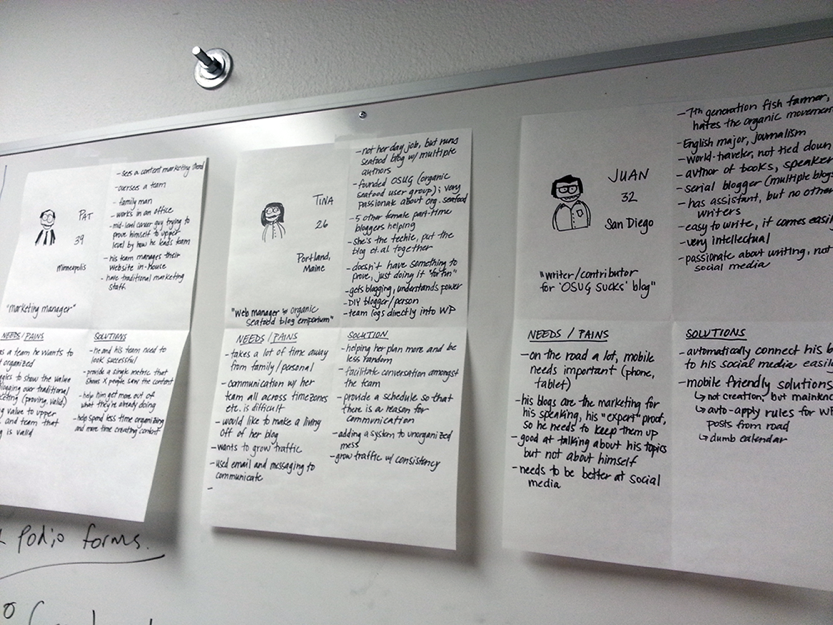 - sees a content marketing need
- oversees a team
- family man
- works in an office
- mid-level career guy trying to
prove himself to upper
level by how he leads team
- his team manages their
website in-house
- have traditional marketing
staff
PAT
39
Minneapolis
"marketing manager"
NEEDS/PAINS
as a team he wants to
organized
to show the value
blogging over traditional
(proving valid)
value to upper
and team that
is valid
SOLUTIONS
- he and his team need to
look successful
- provide a single metric that
shows X people saw the content
- help him get more out of
what they're already doing
- help spend less time organizing
and more time creating content
TINA
26
Portland,
Maine
"web manager → organic
seafood blog emporium"
- not her day job, but runs
seafood blog w/ multiple
authors
- founded OSUG (organic
seafood user group); very
passionate about org. seafood
- 5 other female part-time
bloggers helping
- she's the techie, put the
blog et.al together
- doesn't have something to
prove, just doing it "for fun"
- gets blogging, understands power
- DIY blogger/person
- team logs directly into WP
NEEDS/PAINS
- takes a lot of time away
from family/personal
- communication w/ her
team all across timezones
etc. is difficult
- would like to make a living
off of her blog
- wants to grow traffic
- used email and messaging to
communicate
-
SOLUTION
- helping her plan more and be
less random
- facilitate conversation amongst
the team
- provide a schedule so that
there is a reason for
communication
- adding a system to unorganized
mess
- grow traffic w/ consistency
JUAN
32
San Diego
"writer/contributor
for 'OSUG SUCKS' blog"
- 7th generation fish farmer,
hates the organic movement
- English major, journalism
- world-traveler, not tied down
- author of books, speaker
- serial blogger (multiple blogs
- has assistant, but no other
writers
- easy to write, it comes easily
- very intellectual
- passionate about writing, not
social media
NEEDS / PAINS
- on the road a lot, mobile
needs important (phone,
tablet)
- his blogs are the marketing for
his speaking, his "expert" proof,
so he needs to keep them up
- good at talking about his topics
but not about himself
- needs to be better at social
media
SOLUTIONS
- automatically connect his b
to his social media easil
- mobile friendly solutions
↳ not creation, but
↳ auto-apply rules for WP
posts from road
↳ dumb calendar
Podio forms.